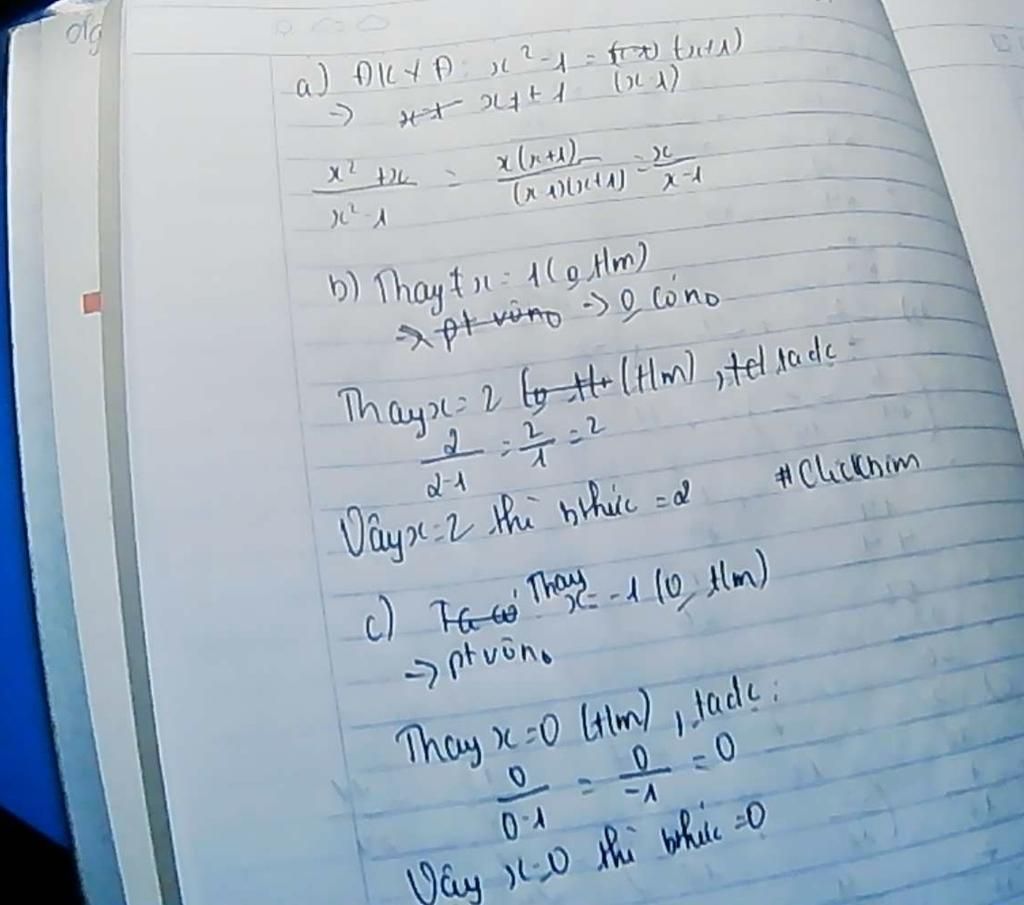 olg
a) ĐKXĐ: x² - 1 = (x+1)
(x-1)
→ x ≠ ± 1
x² + x / x² - 1 = x(x+1) / (x-1)(x+1) = x / x-1
b) Thay x = 1 (0 tlm)
→ pt vôn0 → 0 có n0
Thay x = 2 (tlm), ta dc:
2 / 2-1 = 2 / 1 = 2
Vây x = 2 thì bthức = 2
#Clicknim
c) Thay x = -1 (0 tlm)
→ pt vôn0
Thay x = 0 (tlm), ta dc:
0 / 0-1 = 0 / -1 = 0
Vây x = 0 thì bthức = 0